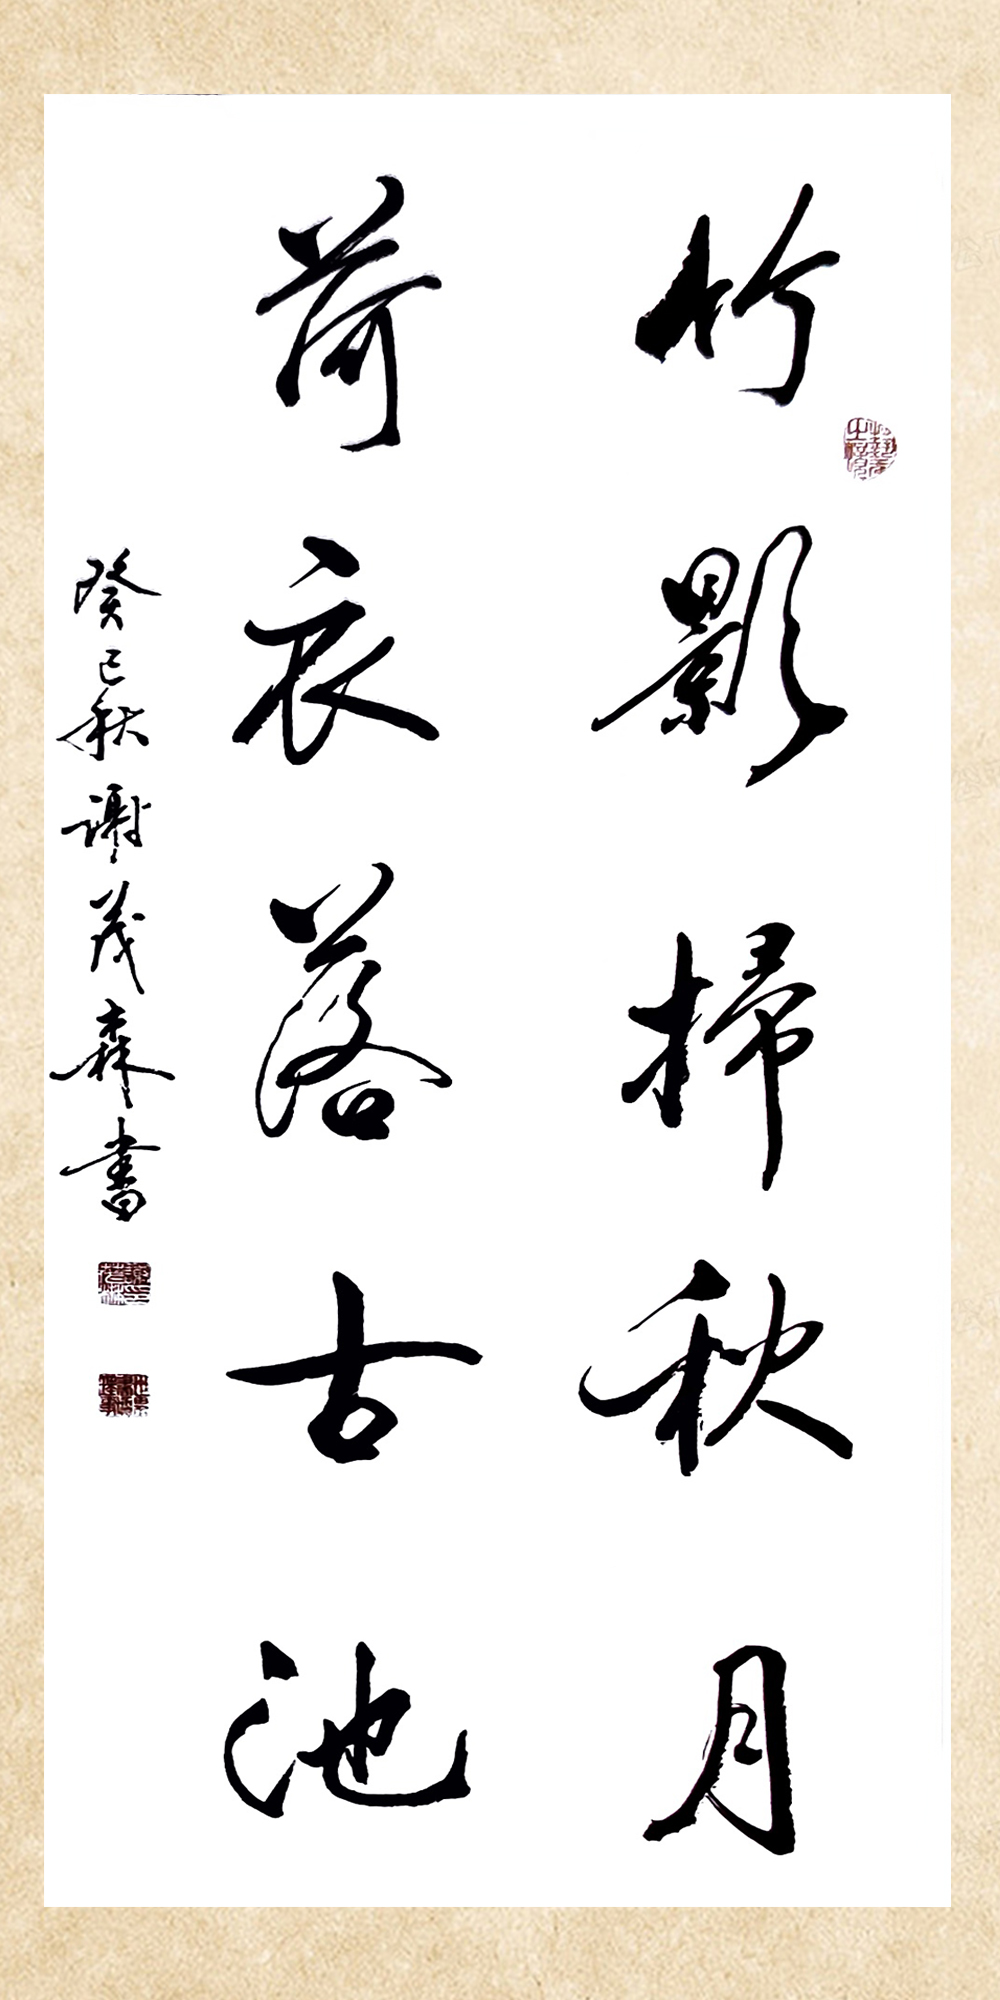 竹影掃秋月
荷衣落古池
癸巳秋谢茂森书